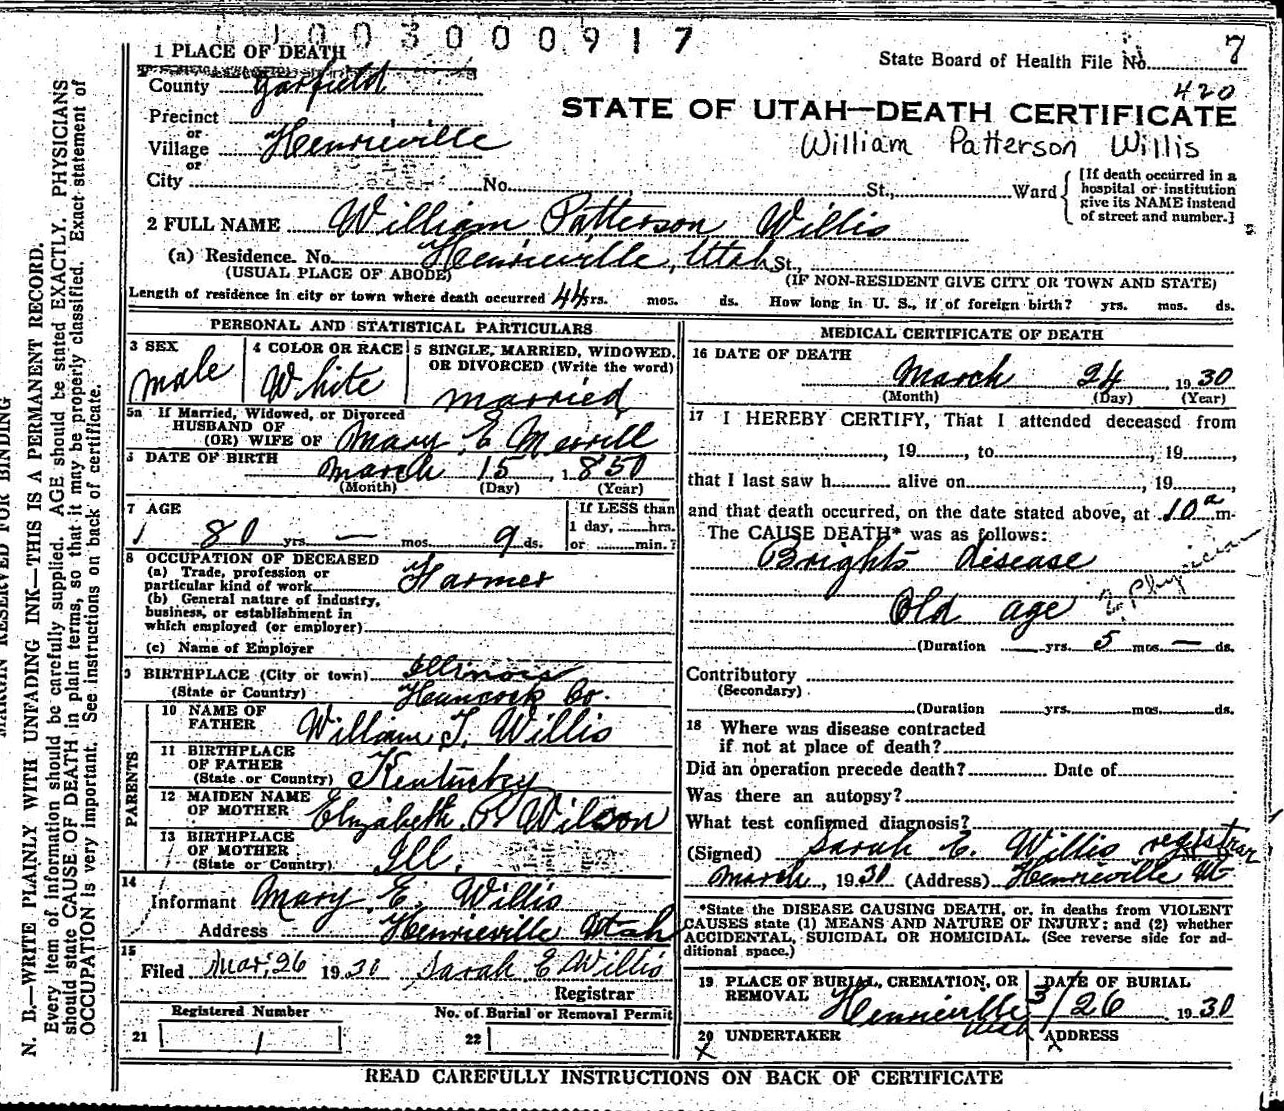 1003000917
1 PLACE OF DEATH
State Board of Health File No. 7
County Garfield
420
STATE OF UTAH—DEATH CERTIFICATE
Precinct
or
William Patterson Willis
Village Henrieville
or
City No. , St., Ward
[If death occurred in a
hospital or institution
give its NAME instead
of street and number.]
2 FULL NAME William Patterson Willis
(a) Residence. No. Henrieville, Utah St.,
(USUAL PLACE OF ABODE) (IF NON-RESIDENT GIVE CITY OR TOWN AND STATE)
Length of residence in city or town where death occurred 44 rs. mos. ds. How long in U. S., if of foreign birth? yrs. mos. ds.
PERSONAL AND STATISTICAL PARTICULARS
3 SEX
male
4 COLOR OR RACE
White
5 SINGLE, MARRIED, WIDOWED,
OR DIVORCED (Write the word)
married
5a If Married, Widowed, or Divorced
HUSBAND OF
(OR) WIFE OF Mary E Merrill
DATE OF BIRTH
March 15, 1850
(Month) (Day) (Year)
7 AGE
80 yrs. — mos. 9 ds.
If LESS than
1 day, hrs.
or min.?
8 OCCUPATION OF DECEASED
(a) Trade, profession or
particular kind of work Farmer
(b) General nature of industry,
business, or establishment in
which employed (or employer)
(c) Name of Employer
9 BIRTHPLACE (City or town) Illinois
(State or Country) Hancock Co.
PARENTS
10 NAME OF
FATHER William T. Willis
11 BIRTHPLACE
OF FATHER
(State or Country) Kentucky
12 MAIDEN NAME
OF MOTHER Elizabeth Wilson
13 BIRTHPLACE
OF MOTHER
(State or Country) Ill.
14
Informant Mary E. Willis
Address Henrieville Utah
15
Filed Mar. 26 1930 Sarah E Willis
Registrar
Registered Number No. of Burial or Removal Permit
21 1 22
MEDICAL CERTIFICATE OF DEATH
16 DATE OF DEATH
March 24, 1930
(Month) (Day) (Year)
17 I HEREBY CERTIFY, That I attended deceased from
, 19 , to , 19 ,
that I last saw h alive on , 19 ,
and that death occurred, on the date stated above, at 10 a m.
The CAUSE DEATH* was as follows:
Brights disease
Old age
Physician
(Duration yrs. 5 mos. — ds.
Contributory
(Secondary)
(Duration yrs. mos. ds.
18 Where was disease contracted
if not at place of death?
Did an operation precede death? Date of
Was there an autopsy?
What test confirmed diagnosis?
(Signed) Sarah E. Willis registrar
March, 1930 (Address) Henrieville Ut
*State the DISEASE CAUSING DEATH, or, in deaths from VIOLENT
CAUSES state (1) MEANS AND NATURE OF INJURY: and (2) whether
ACCIDENTAL, SUICIDAL OR HOMICIDAL. (See reverse side for ad-
ditional space.)
19 PLACE OF BURIAL, CREMATION, OR
REMOVAL Henrieville
Utah
DATE OF BURIAL
3/26 1930
20 UNDERTAKER
X
ADDRESS
X
READ CAREFULLY INSTRUCTIONS ON BACK OF CERTIFICATE
MARGIN RESERVED FOR BINDING
N. B.—WRITE PLAINLY WITH UNFADING INK—THIS IS A PERMANENT RECORD.
Every item of information should be carefully supplied. AGE should be stated EXACTLY. PHYSICIANS
should state CAUSE OF DEATH in plain terms, so that it may be properly classified. Exact statement of
OCCUPATION is very important. See instructions on back of certificate.